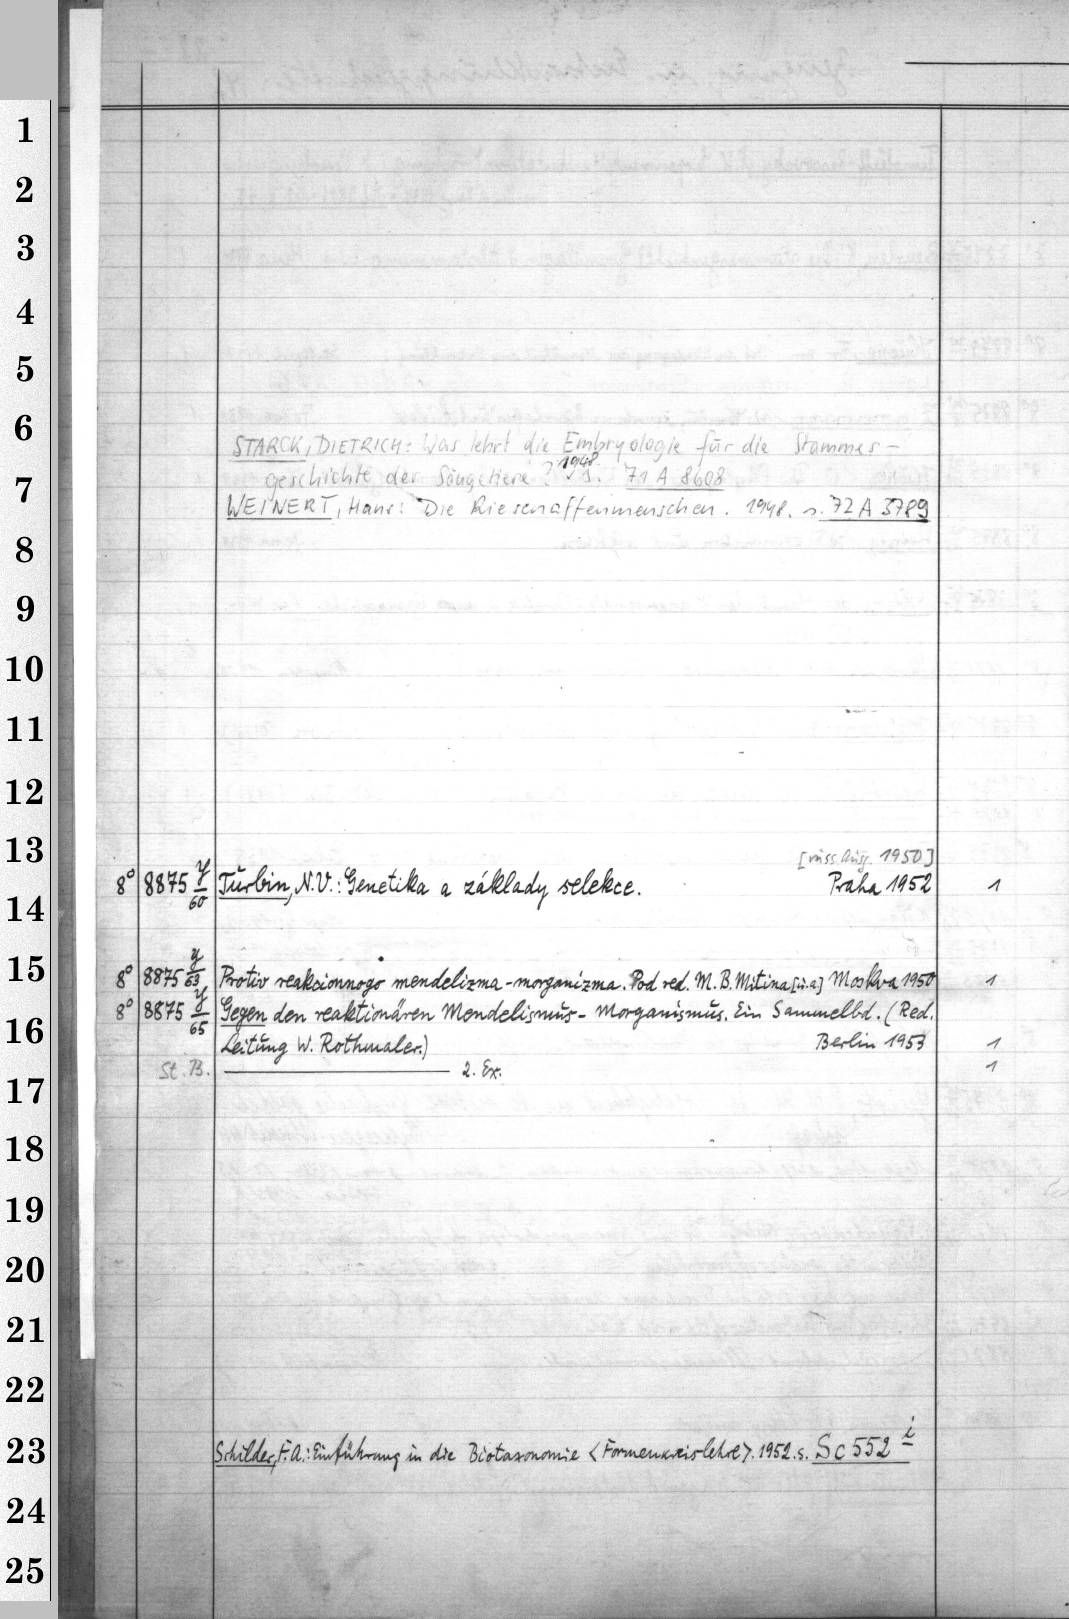 1
2
3
4
5
6
STARCK, DIETRICH: Was lehrt die Embryologie für die Stammes-
geschichte der Säugetiere? 1948. s. 71 A 8608
7
WEINERT, Hans: Die Riesenaffenmenschen. 1948. s. 72 A 3789
8
9
10
11
12
13
[russ. Ausg. 1950]
8° 8875 y/60 Turbin, N.V.: Genetika a základy selekce. Praha 1952 1
14
15
8° 8875 y/63 Protiv reakcionnogo mendelizma-morganizma. Pod red. M. B. Mitina [u.a] Moskva 1950 1
8° 8875 y/65 Gegen den reaktionären Mendelismus-Morganismus. Ein Sammelbd. (Red.
16
Leitung W. Rothmaler.) Berlin 1953 1
St. B. 2. Ex. 1
17
18
19
20
21
22
23
Schilder, F. A.: Einführung in die Biotaxonomie <Formenkreislehre>. 1952. s. Sc 552 i
24
25